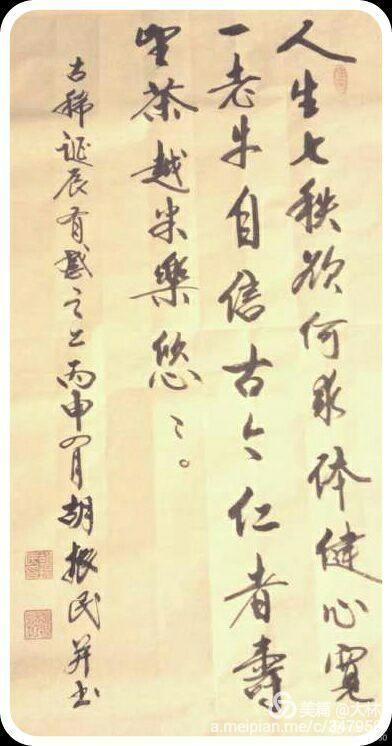 人生七秩欲何求体健心宽
一老牛自信古今仁者壽
望茶越米樂悠〻。
古稀誕辰有感之 丙申四月胡振民并书
美篇 @大林
a.meipian.me/c/347958